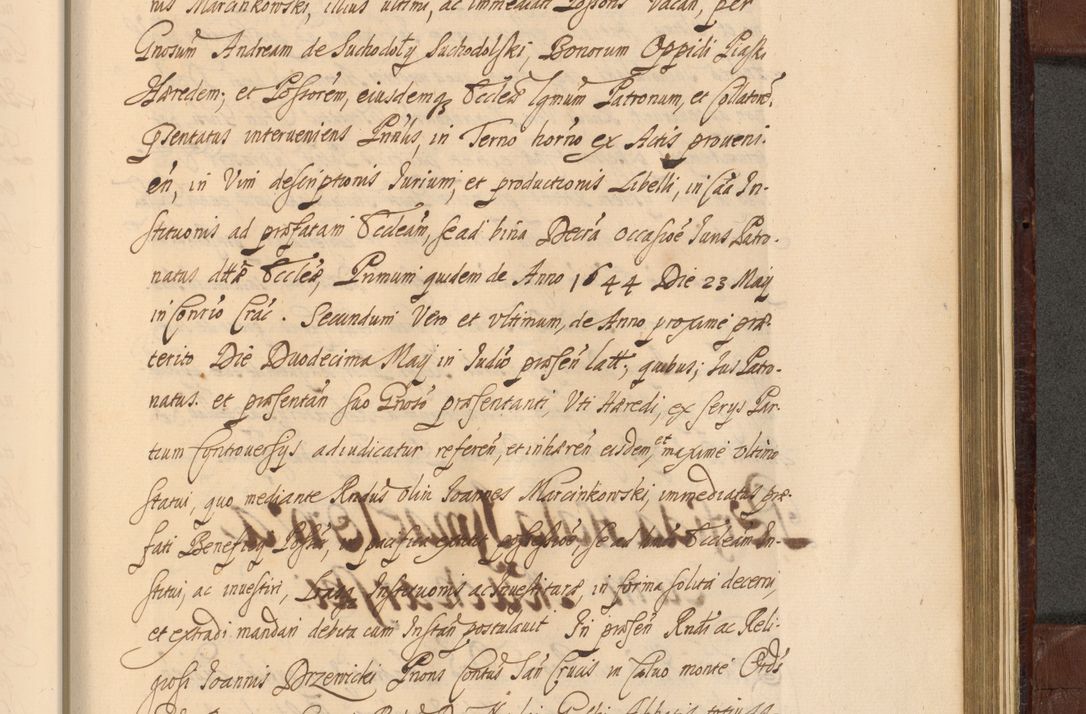 nis Marcinkowski, illius ultimi, ac immediati Possoris vacan, per
Gnosum Andream de Suchodoły Suchodolski, Bonorum Oppidi Piaski
Hæredem, et Possorem, eiusdemq Eccleæ Lgmum Patronum, et Collatorē
Psentatus interveniens Pnńs, in Termo horno ex Actis proveni-
eñ, in Vim descriptionis Iurium, et productionis Libelli, in Cãa In-
stituonis ad præfatam Eccleam, se ad bina Decrã occasiõe Iuris Patro-
natus dttæ Eccleæ, Primum quidem de Anno 1644 Die 23 Maij
in Contrio Crac. Secundum Vero et Vltimum, de Anno proxime præ-
terito Die Duodecima Maij in Iudio præsen latt, quibus, Ius Patro-
natus et præsentañ suo Gñoso præsentanti, Vti Hæredi, ex serys Par-
tium Controversys adiudicatur refereñ, et inhæreñ eisdem, et maxime Vltimo
statui, quo mediante Rndus olim Ioannes Marcinkowski, immediatus præ-
fati Beneficij Possor, in pacifica extitit possessiõe, se ad hanc Eccleam In-
stitui, ac investiri, Institutionis ac Investituræ, in forma solita decerni,
et extradi mandari debita cum Instañ postulavit In præseñ Rndi ac Reli-
giosi Ioannis Drzewicki Prioris Contus San Crucis in Calvo monte Ordis
Abbatis totius